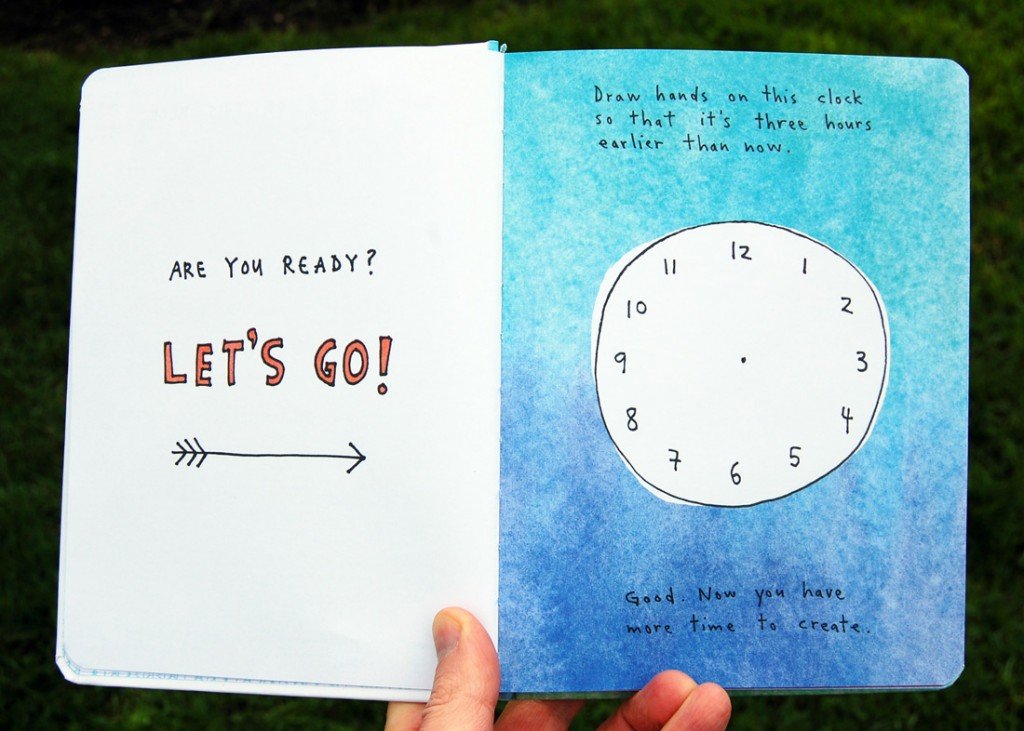 ARE YOU READY?
LET'S GO!
Draw hands on this clock
so that it's three hours
earlier than now.
12
1
2
3
4
5
6
7
8
9
10
11
Good. Now you have
more time to create.